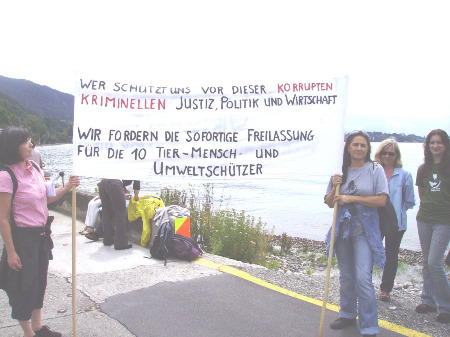 WER SCHÜTZT UNS VOR DIESER KORRUPTEN
KRIMINELLEN JUSTIZ, POLITIK UND WIRTSCHAFT
WIR FORDERN DIE SOFORTIGE FREILASSUNG
FÜR DIE 10 TIER-MENSCH- UND
UMWELTSCHÜTZER